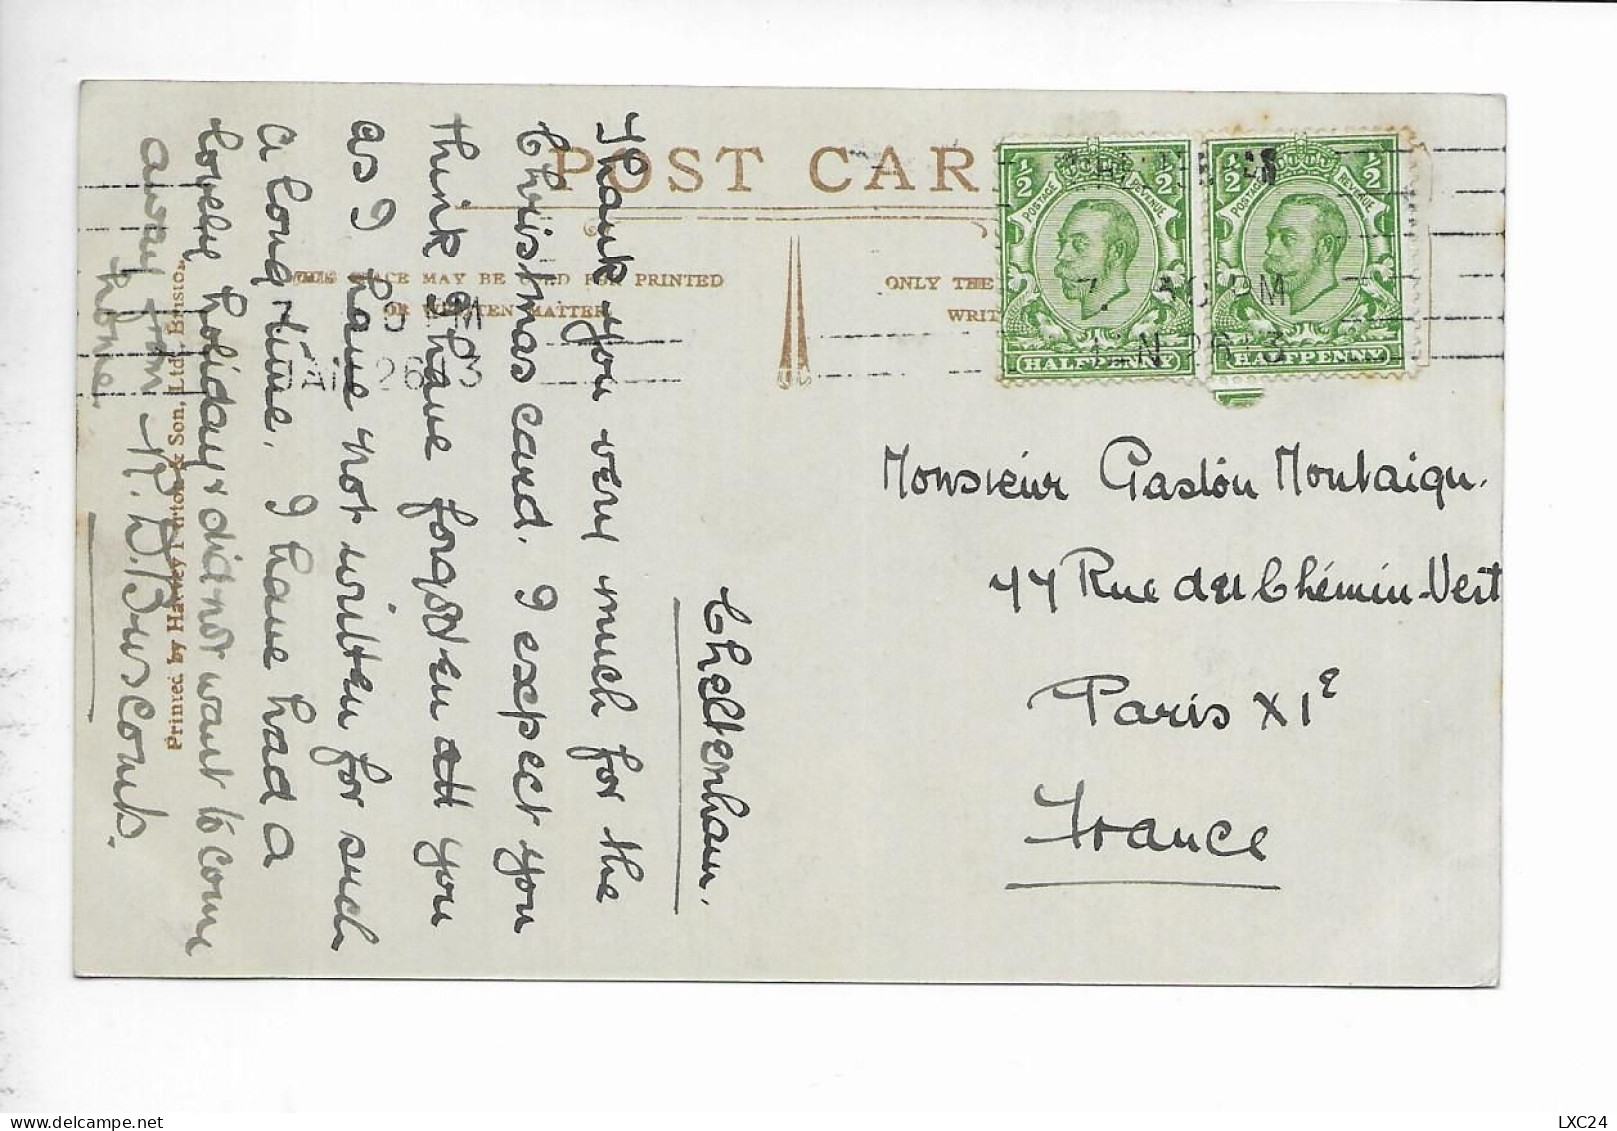 POST CAR
SPACE MAY BE USED FOR PRINTED
OR WRITTEN MATTER
ONLY THE
WRIT
½ ½
POSTAGE REVENUE
HALFPENNY
½ ½
POSTAGE REVENUE
HALFPENNY
PM
JAN 26 13
30 PM
N 26 13
Cheltenham.
Thank you very much for the
Christmas card. I expect you
think I have forgotten all you
as I have not written for such
a long time. I have had a
lovely holiday & did not want to come
away from
home.
Printed by Harvey Barton & Son, Ltd. Bristol.
Monsieur Gaston Montaigu.
77 Rue du Chémin-Vert
Paris XIe
France
LXC24